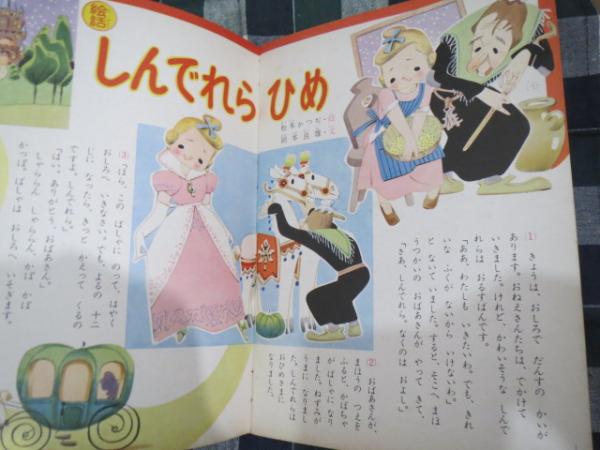 絵話
しんでれら ひめ
松本かつぢ・絵
岡本良雄・文
(1) きょうは、おしろで だんすの かいが
あります。おねえさんたちは、でかけて
いきました。けれど、かわいそうな しんで
れらは おるすばんです。
「ああ、わたしも いきたいわ。でも、きれ
いな ふくが ないから いけないわ。」
と ないて いました。すると、そこへ まほ
うつかいの おばあさんが やって きて、
「さあ、しんでれら、なくのは およし。」
(2) おばあさんが、
まほうの つえを
ふると、かぼちゃ
が ばしゃに なり
ました。ねずみが
うまに なりまし
た。しんでれらは
おひめさまに
なりました。
(3) 「ほら、この ばしゃに のって、はやく
おしろへ いきなさい。でも、よるの 十二
じに なったら、きっと かえって くるの
ですよ、しんでれら。」
「はい。ありがとう、おばあさん。」
しゃららん しゃららん、かぱ かぱ
かっぱ。ばしゃは おしろへ いそぎます。